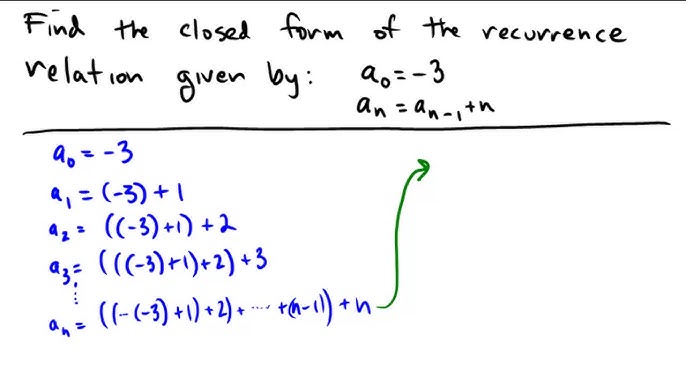 Find the closed form of the recurrence
relation given by: a₀ = -3
aₙ = aₙ₋₁ + n
a₀ = -3
a₁ = (-3) + 1
a₂ = ((-3)+1) + 2
a₃ = (((-3)+1)+2) + 3
⋮
aₙ = ((··(-3)+1)+2)+ ···· +(n-1)) + n